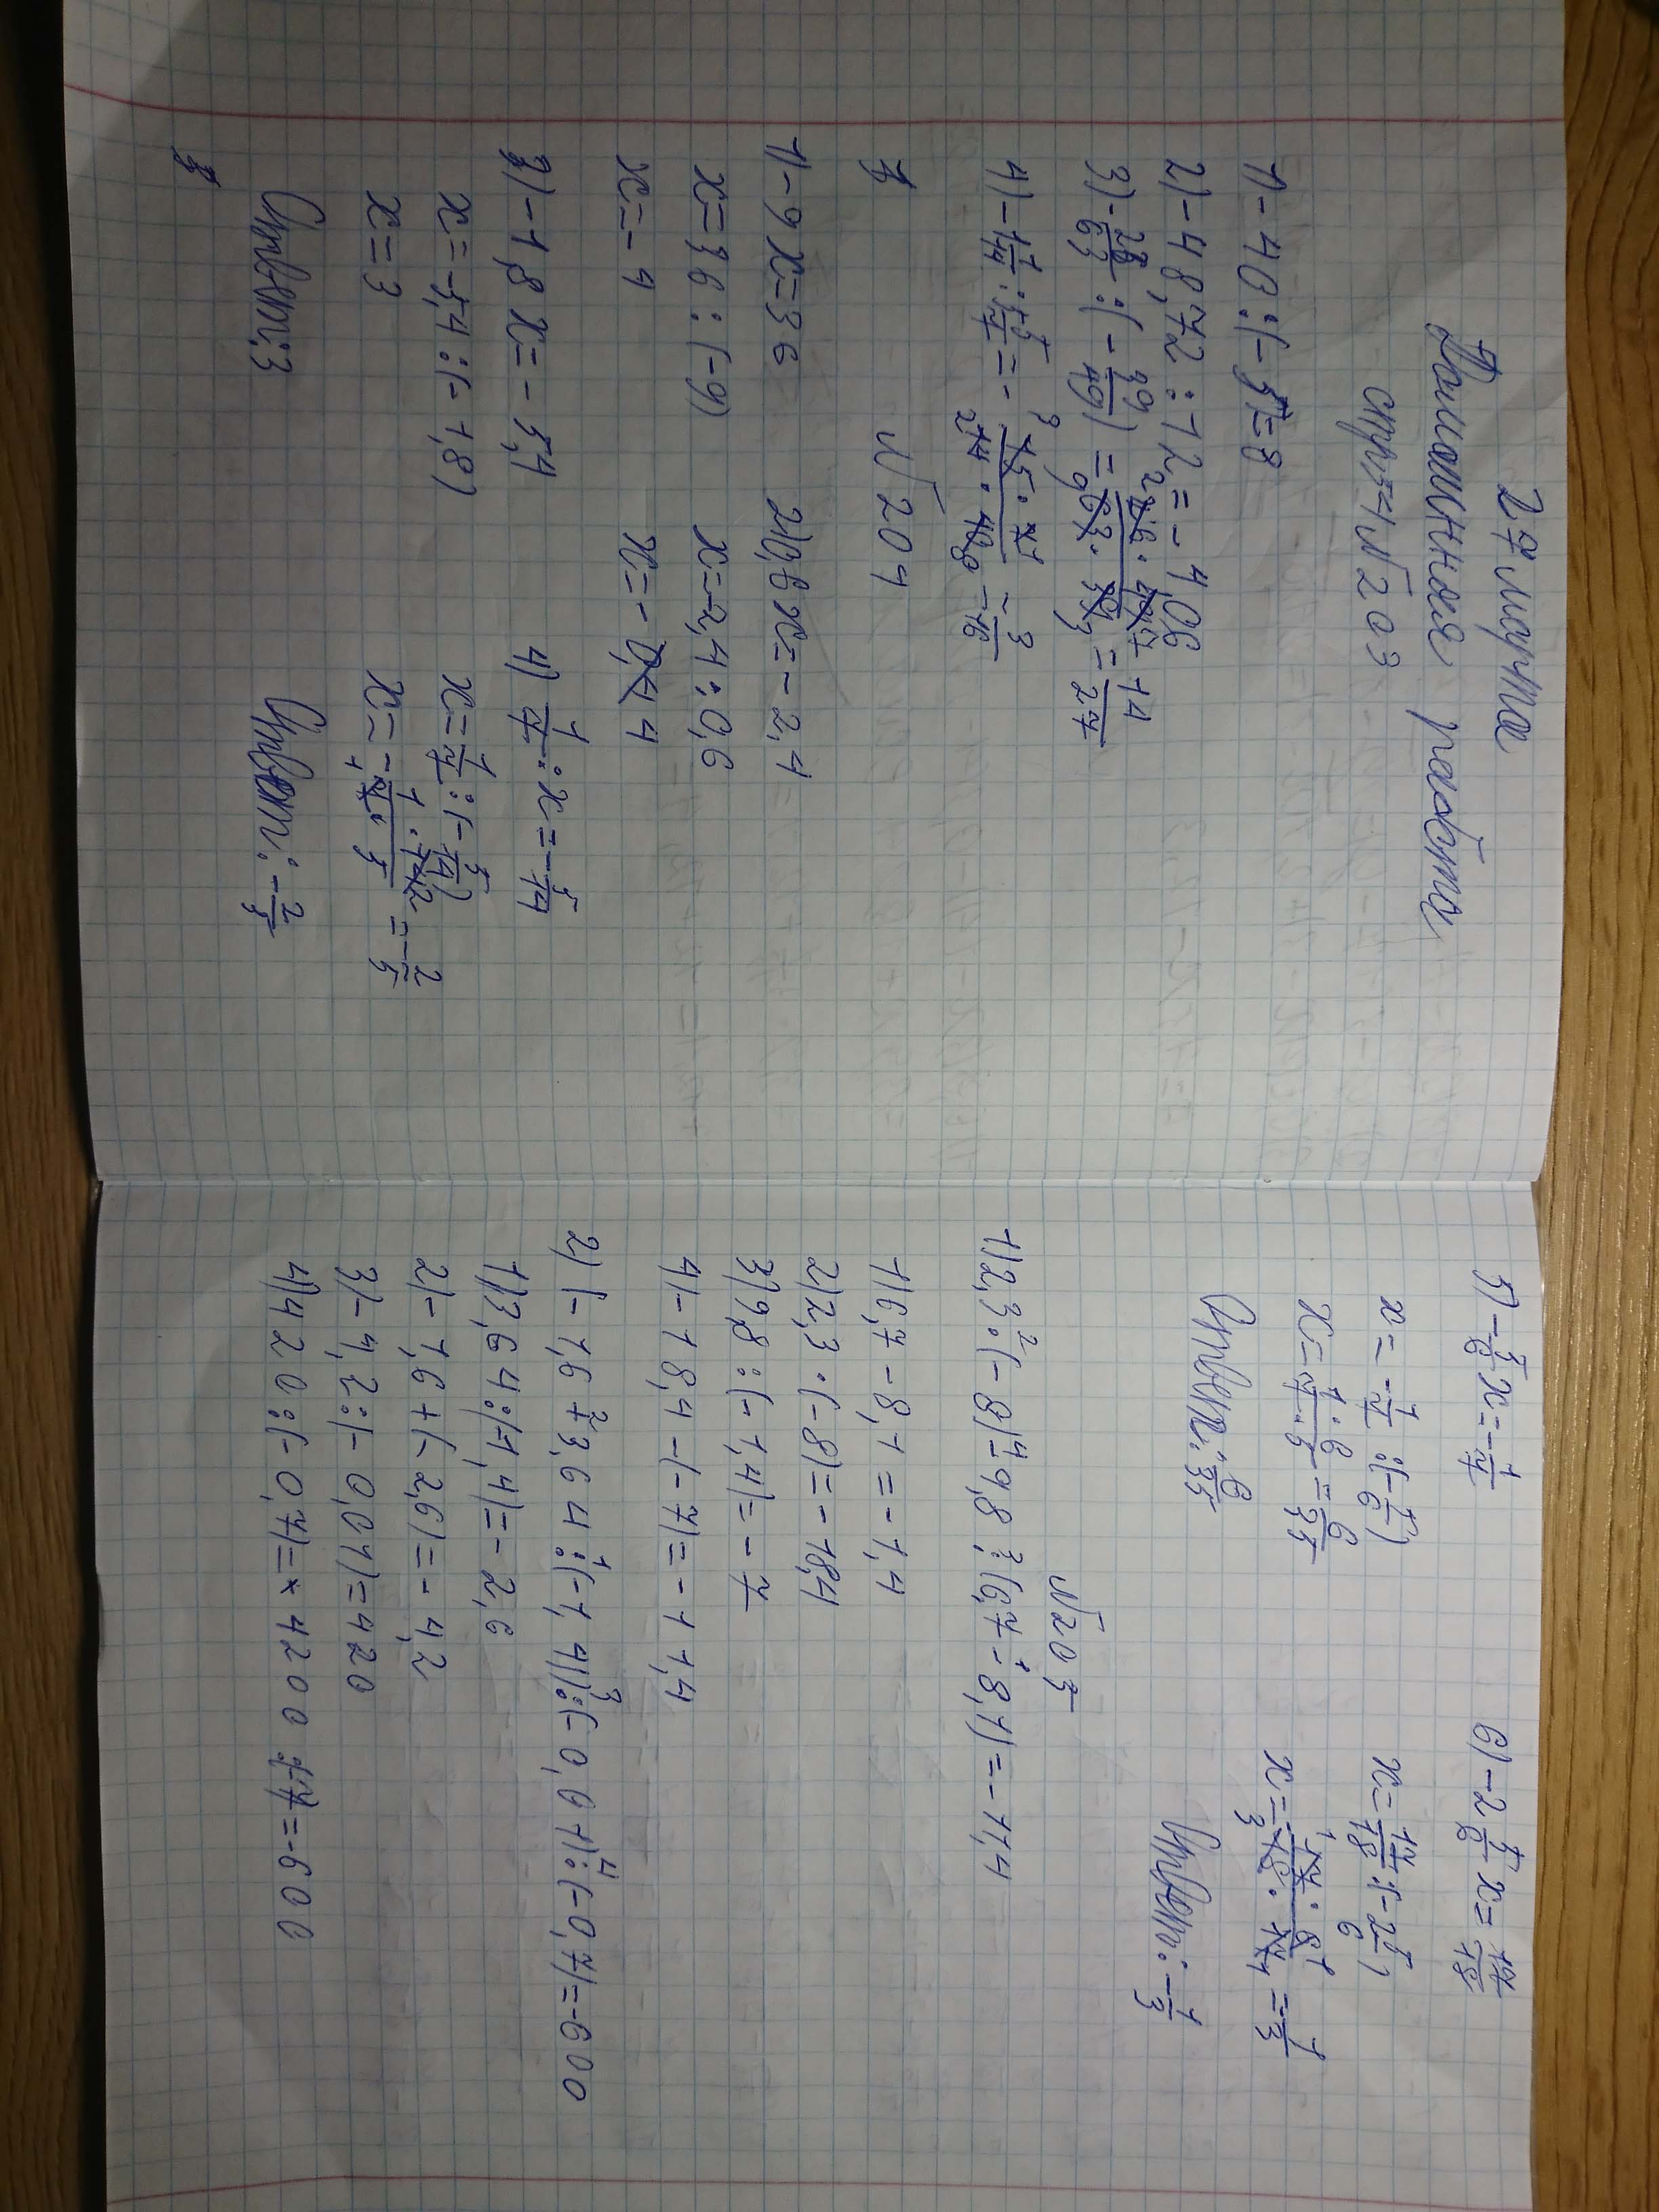 27 марта
Домашняя работа
стр 57 №203
1) -40:(-5)=8
2) -48,72:12=-4,06
3) -26/63:(-39/49)=26·49/63·39=14/27
4) -1 1/14:5/7=-3/
№204
1) -9x=36
x=36:(-9)
x=-4
2) 0,6x=-2,4
x=-2,4:0,6
x=-4
3) -1,8x=-5,4
x=-5,4:(-1,8)
x=3
Ответ:3
4) 1/7:x=-5/14
x=1/7:(-5/14)
x=-1·14/7·5=-2/5
Ответ:-2/5
5) -5/6x=-1/7
x=-1/7:(-5/6)
x=1/7·6/5=6/35
Ответ:6/35
6) -2 5/6x=17/18
x=17/18:(-2 5/6)
x=-17·6/18·17=-1/3
Ответ:-1/3
№205
1) 2,3·(-8)-9,8:(6,7-8,1)=-11,4
1) 6,7-8,1=-1,4
2) 2,3·(-8)=-18,4
3) 9,8:(-1,4)=-7
4) -18,4-(-7)=-11,4
2) (-1,6+3,64:(-1,4)):(-0,01):(-0,7)=-600
1) 3,64:(-1,4)=-2,6
2) -1,6+(-2,6)=-4,2
3) -4,2:(-0,01)=420
4) 420:(-0,7)=4200:(-7)=-600